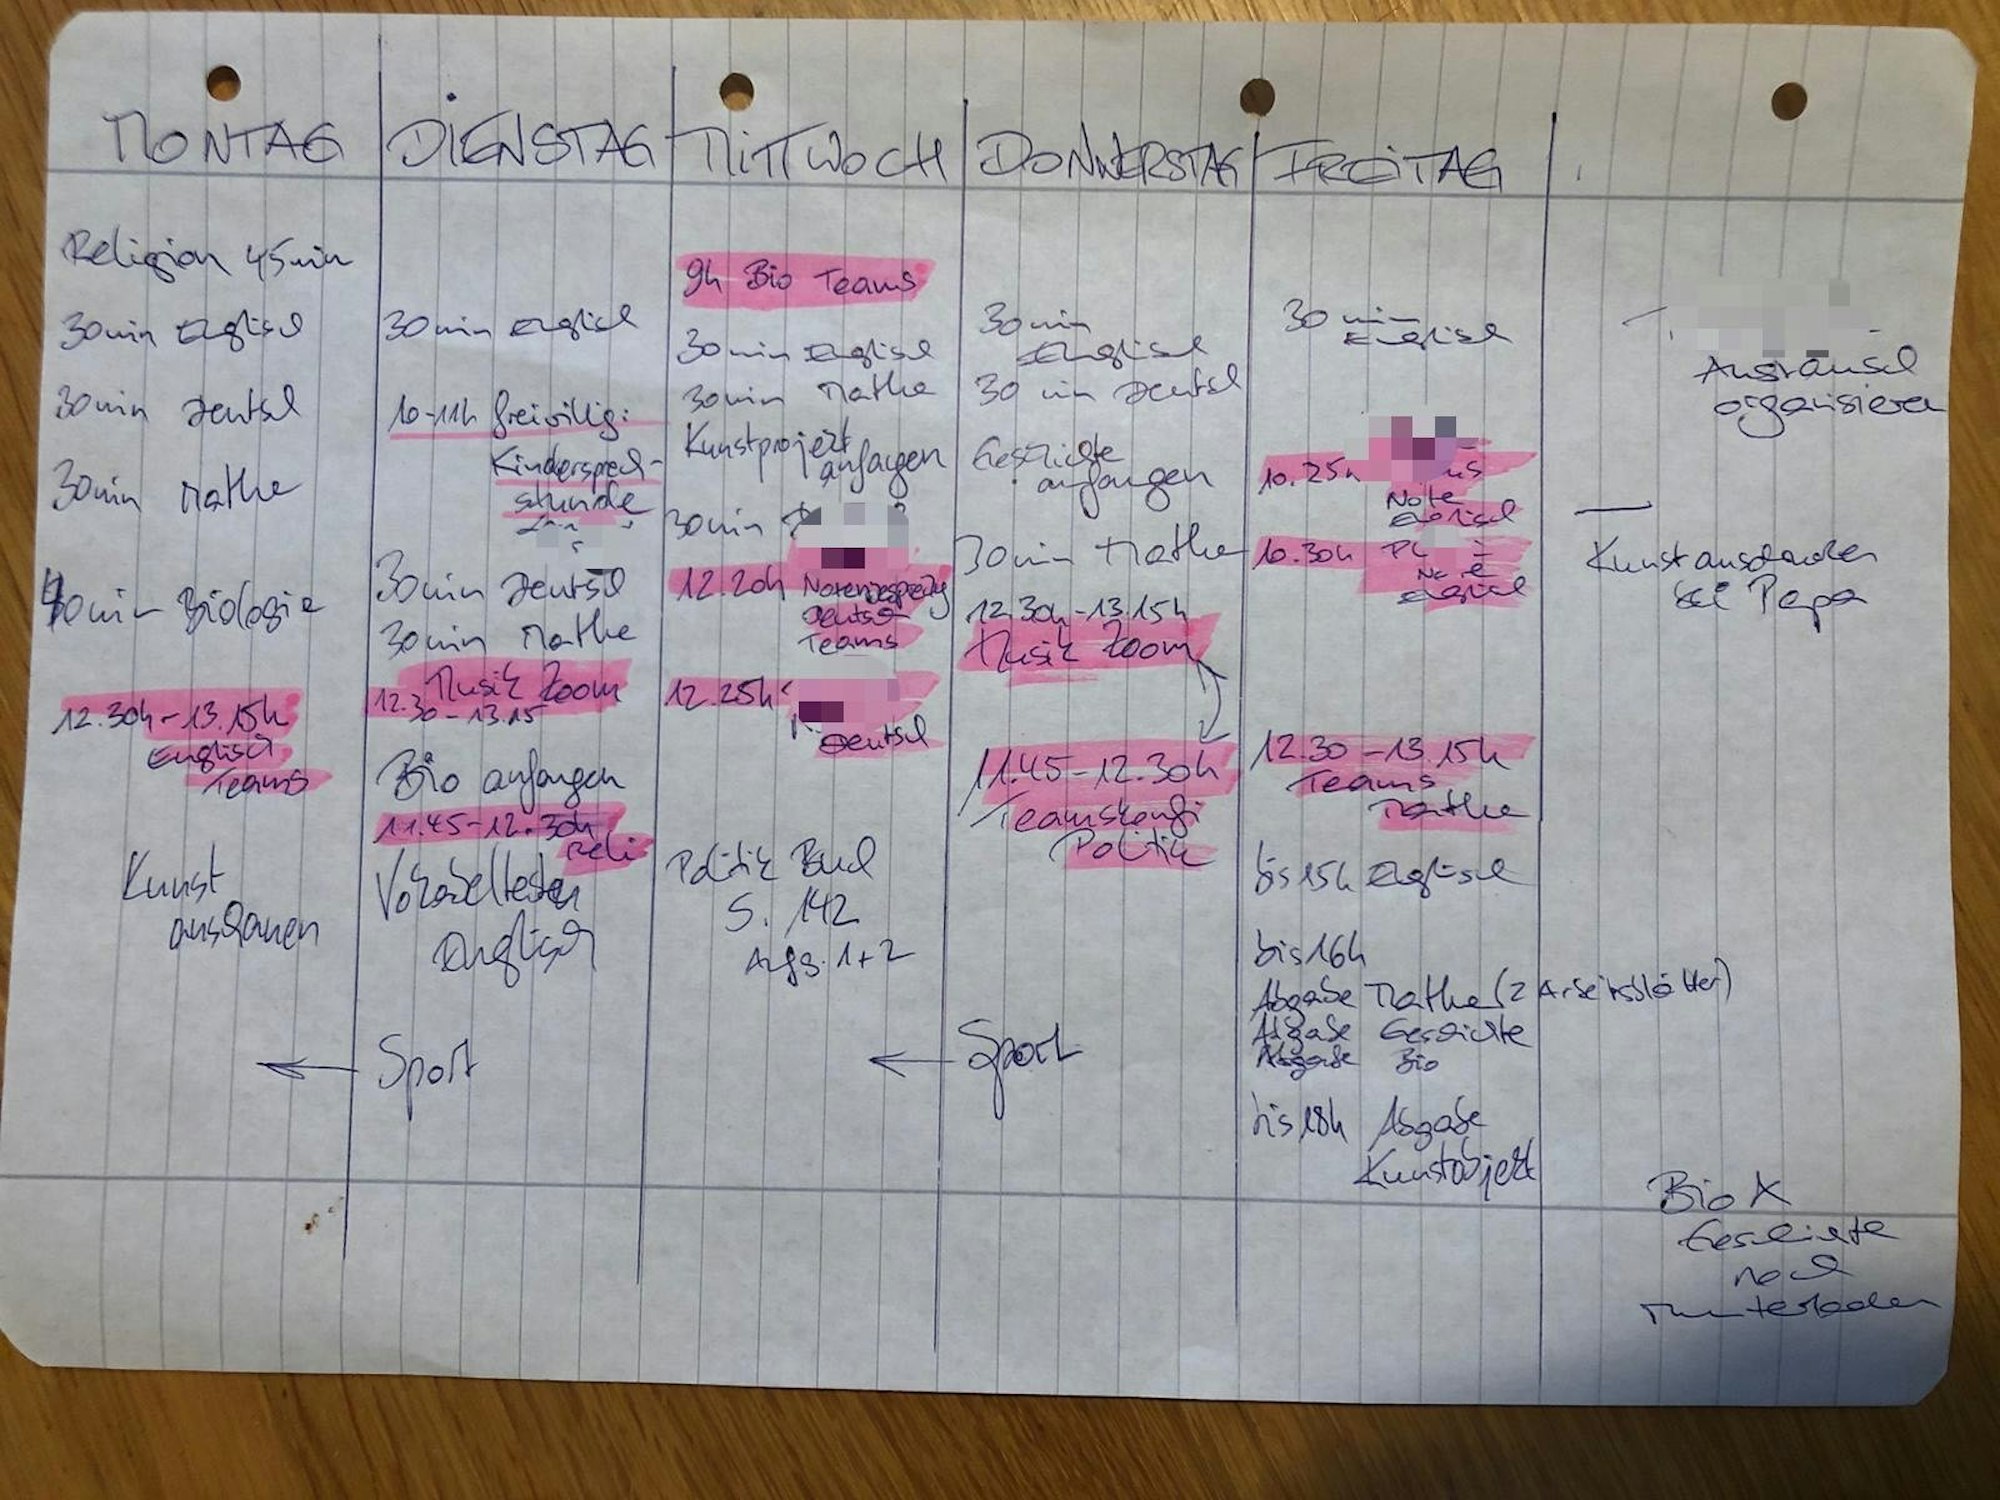 MONTAG
Religion 45min
30min Englisch
30min Deutsch
30min Mathe
40min Biologie
12.30h-13.15h
Englisch
Teams
Kunst
anschauen
DIENSTAG
30min Englisch
10-11h freiwillig:
Kindersprech-
stunde
30min Deutsch
30min Mathe
Musik Zoom
12.30-13.15
Bio anfangen
11.45-12.30h
Reli
Vokabeltesten
Englisch
Sport
MITTWOCH
9h Bio Teams
30min Englisch
30min Mathe
Kunstprojekt
anfangen
30min
12.20h Notenbesprechg
Deutsch
Teams
12.25h
Deutsch
Politik Buch
S. 142
Aufg. 1+2
DONNERSTAG
30min
Englisch
30min Deutsch
Geschichte
anfangen
30min Mathe
12.30h-13.15h
Musik Zoom
11.45-12.30h
Teamskonfi
Politik
Sport
FREITAG
30min
Englisch
10.25h
Note
Englisch
10.30h
Note
Englisch
12.30-13.15h
Teams
Mathe
bis 15h Englisch
bis 16h
Abgabe Mathe (2 Arbeitsblätter)
Abgabe Geschichte
Abgabe Bio
bis 18h Abgabe
Kunstobjekt
Austausch
organisieren
Kunst ausdrucken
bei Papa
Bio X
Geschichte
noch
runterladen